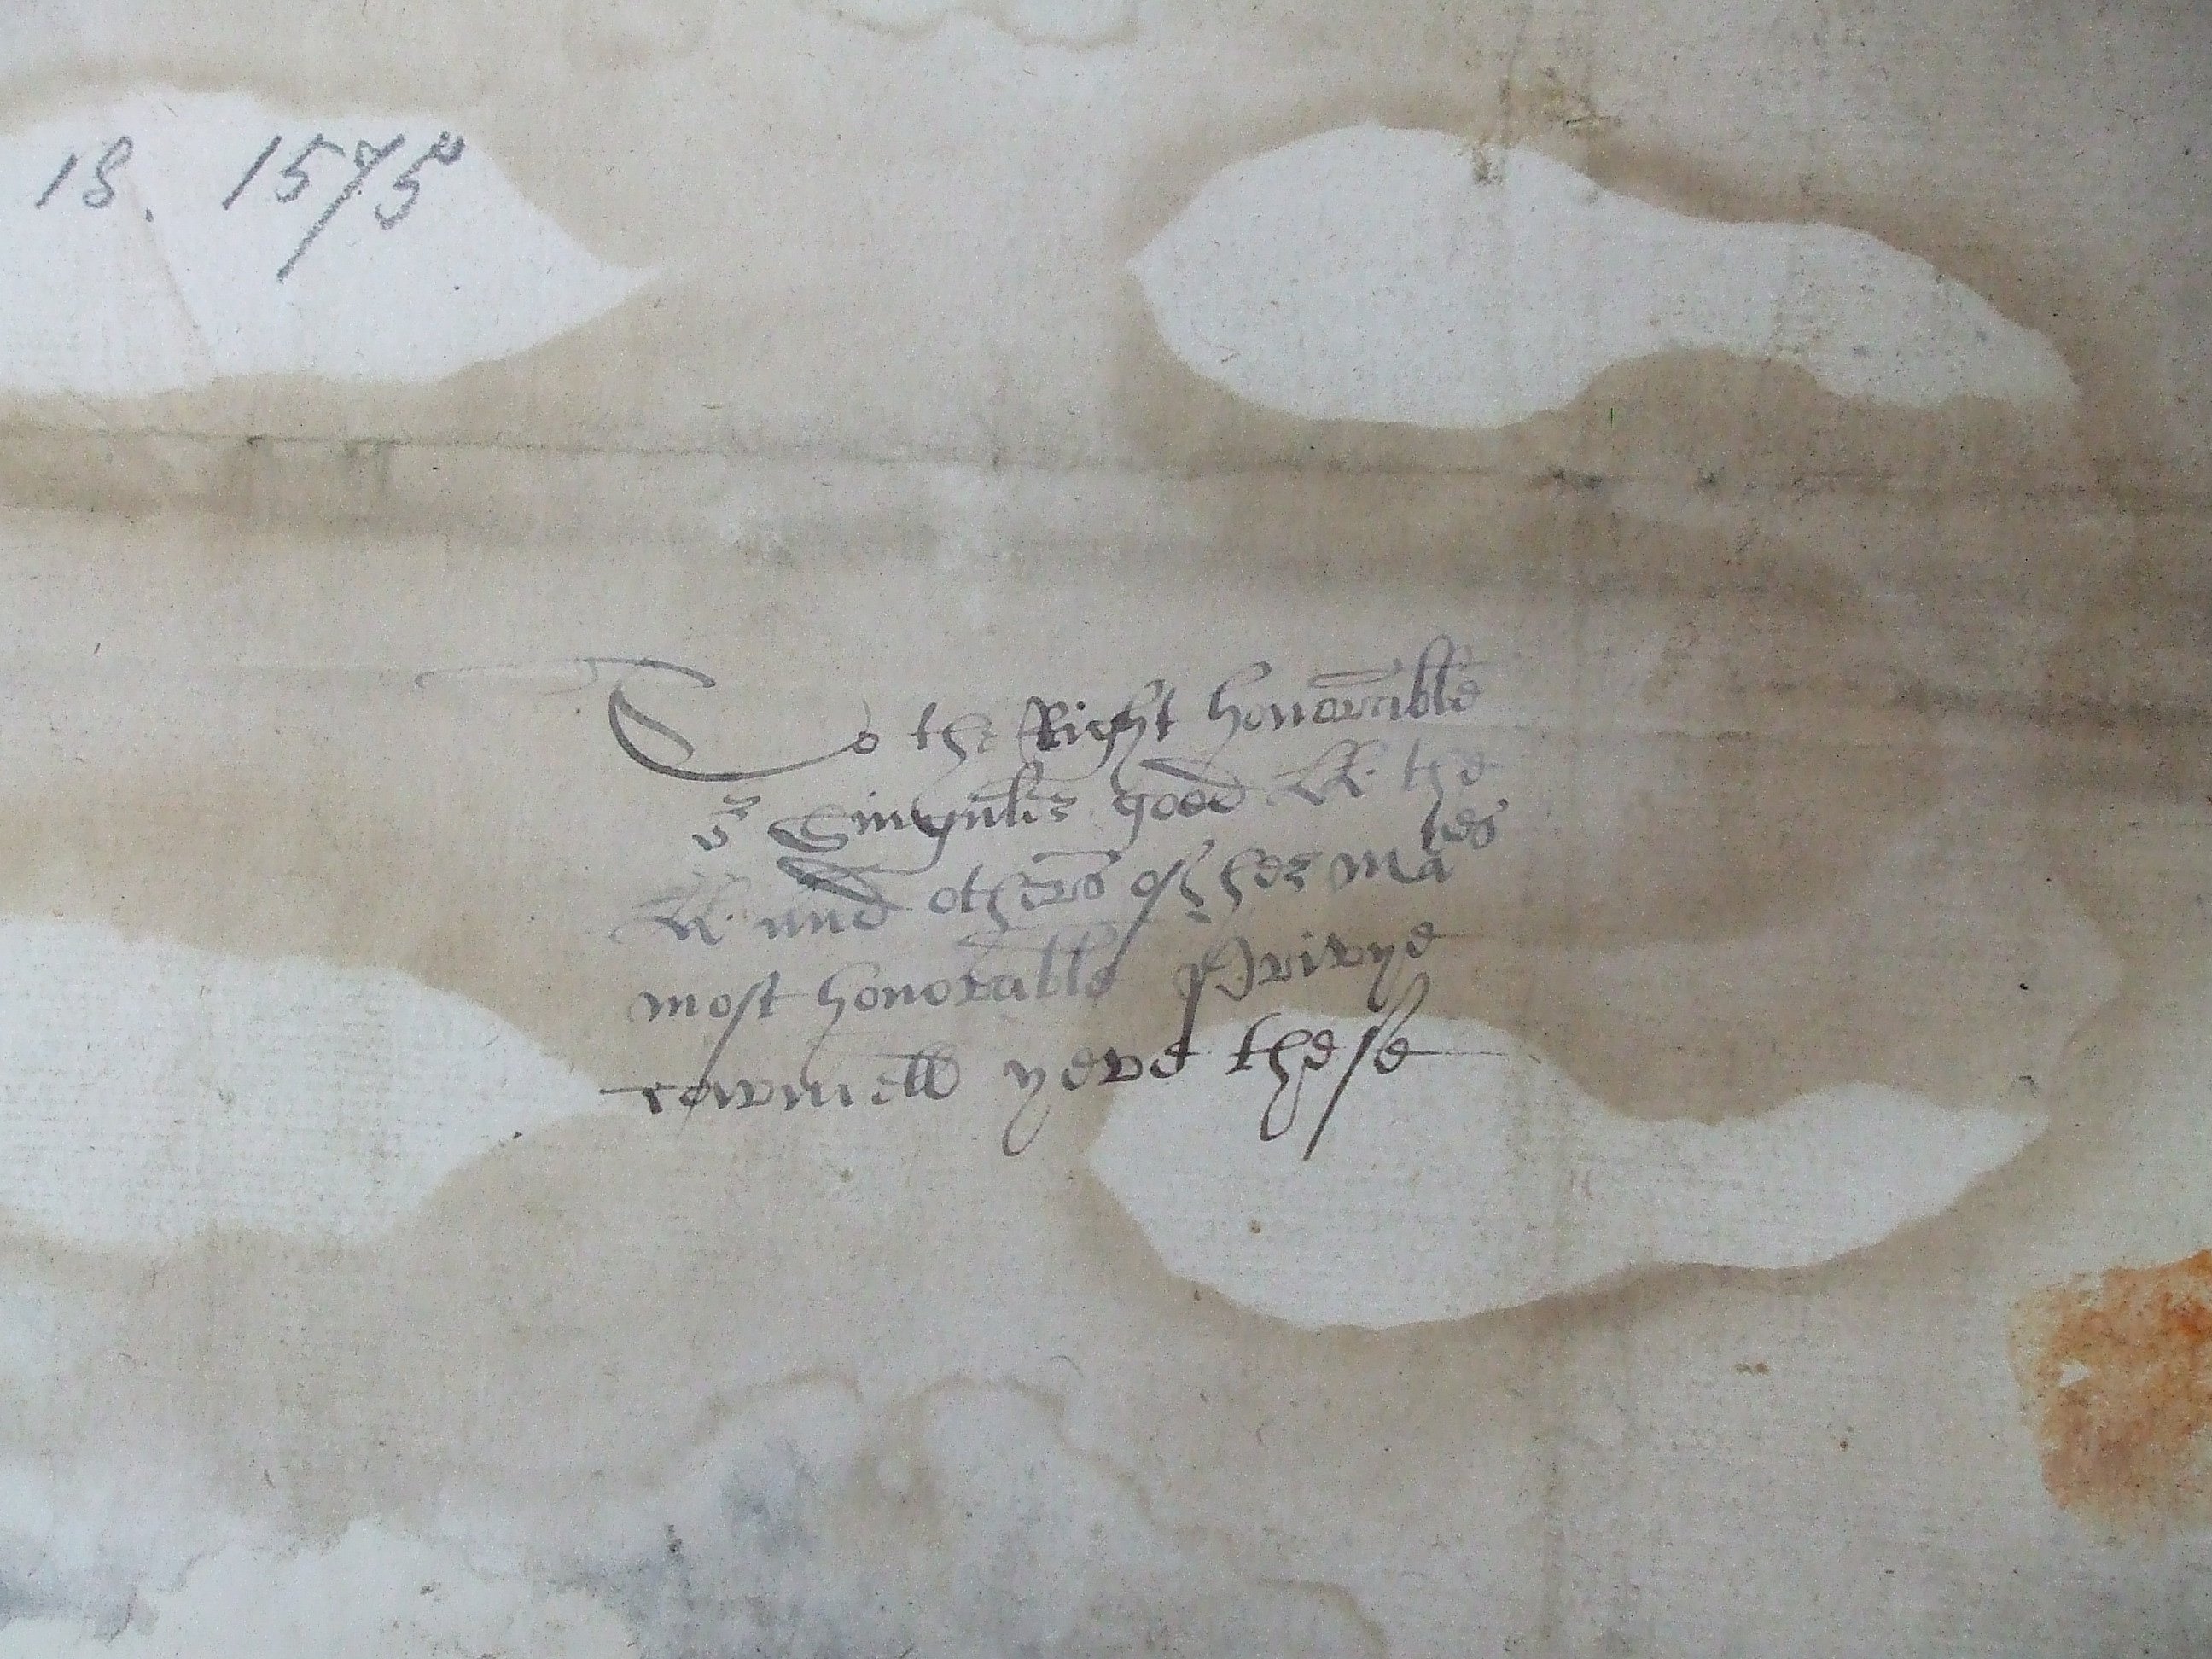 18. 1575
To the Right honorable
or Singuler good LL. the
LL. and others of her Maties
most honorable Privye
cownsell yeve these